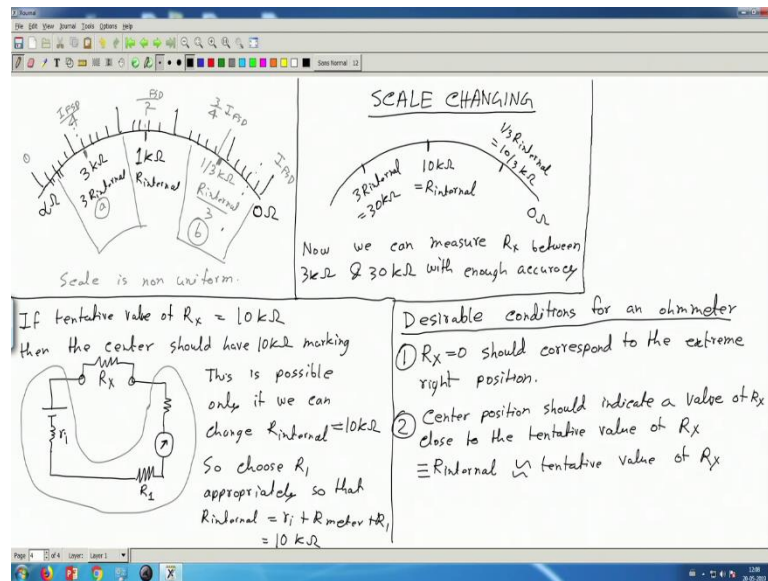 Xournal
File Edit View Journal Tools Options Help
Sans Normal 12
0
I_FSD/4
FSD/2
3/4 I_FSD
I_FSD
αΩ
3kΩ
3 Rinternal
ⓐ
1kΩ
Rinternal
1/3 kΩ
Rinternal/3
ⓑ
0Ω
Scale is non uniform.
SCALE CHANGING
3 Rinternal
= 30kΩ
10kΩ
= Rinternal
1/3 Rinternal
= 10/3 kΩ
0Ω
Now we can measure Rx between
3kΩ & 30kΩ with enough accuracy
If tentative value of Rx = 10kΩ
then the center should have 10kΩ marking
Rx
ri
R1
This is possible
only if we can
change Rinternal = 10kΩ
So choose R1
appropriately so that
Rinternal = ri + Rmeter + R1
= 10 kΩ
Desirable conditions for an ohmmeter
① Rx = 0 should correspond to the extreme
right position.
② Center position should indicate a value of Rx
close to the tentative value of Rx
≡ Rinternal ≃ tentative value of Rx
Page 4 of 4 Layer: Layer 1
12:08